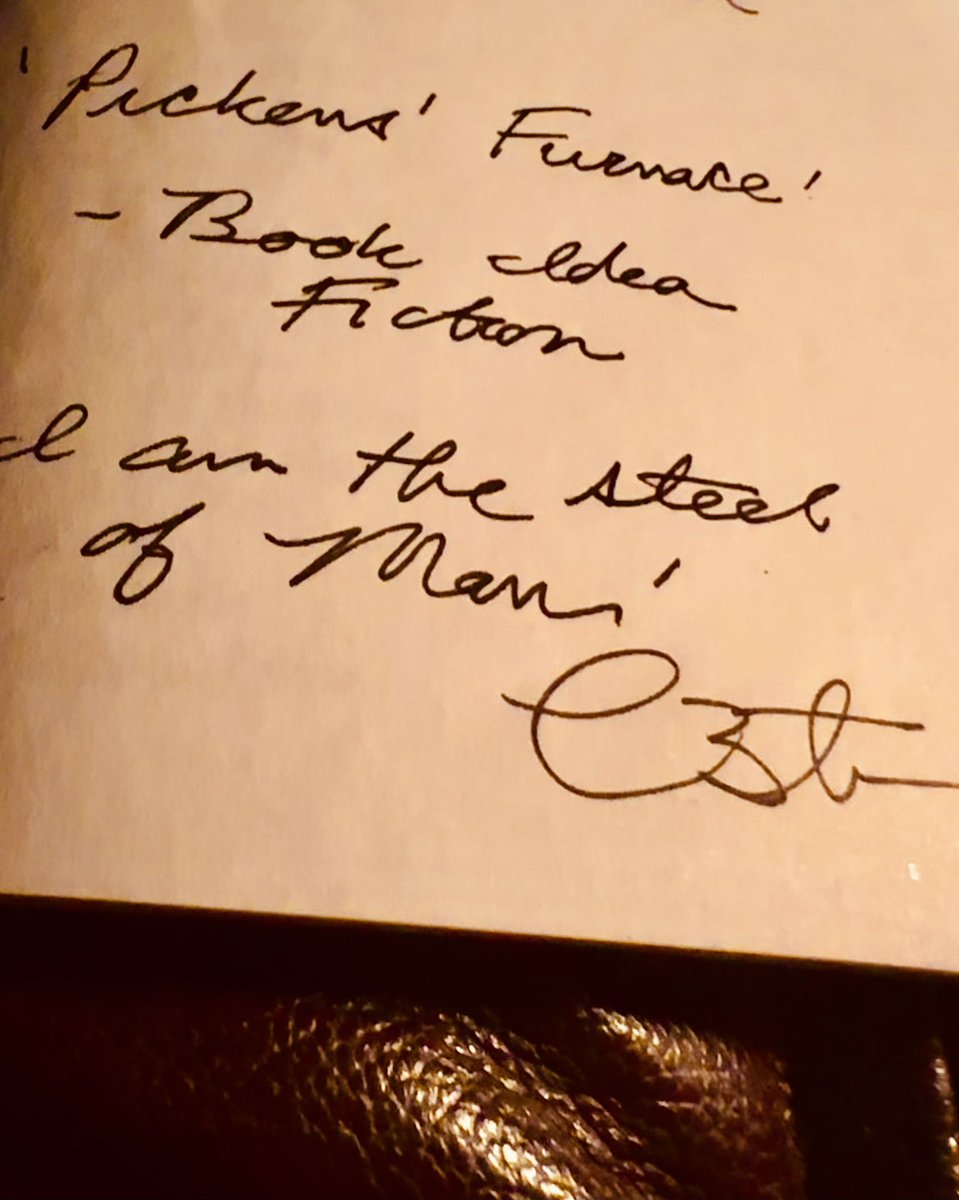 'Pickens' Furnace'
- Book Idea
Fiction
I am the steel
of Man'